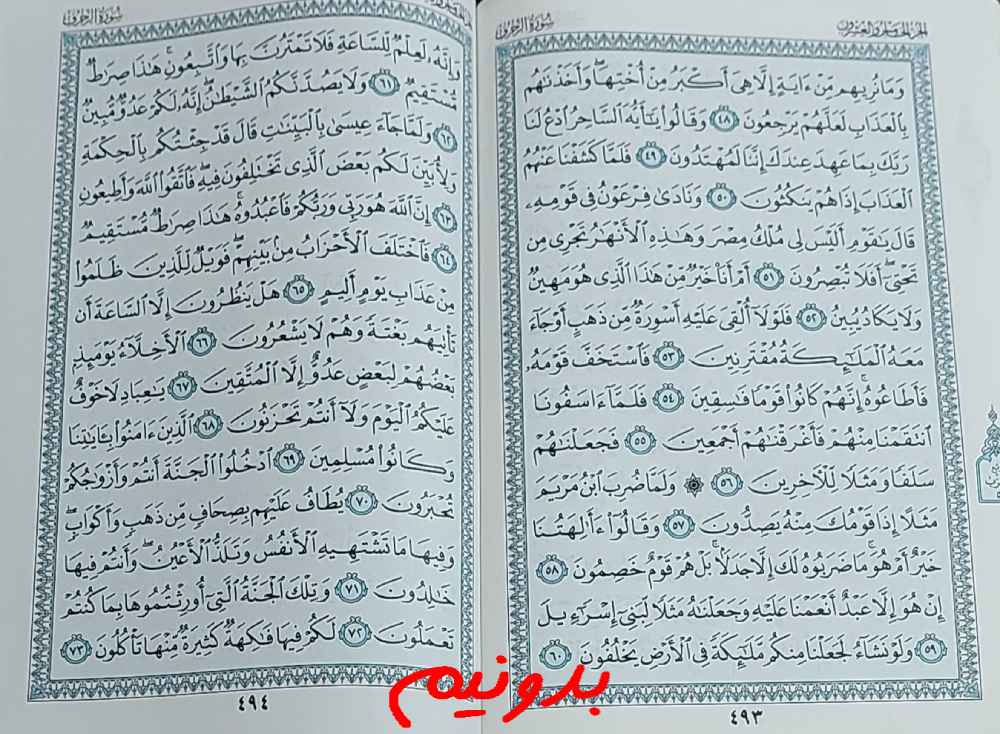 الجزء الخامس والعشرون
سورة الزخرف
وَمَا نُرِيهِم مِّنْ ءَايَةٍ إِلَّا هِيَ أَكْبَرُ مِنْ أُخْتِهَا ۖ وَأَخَذْنَٰهُم
بِالْعَذَابِ لَعَلَّهُمْ يَرْجِعُونَ ٤٨ وَقَالُوا۟ يَٰٓأَيُّهَ السَّاحِرُ ادْعُ لَنَا
رَبَّكَ بِمَا عَهِدَ عِندَكَ إِنَّنَا لَمُهْتَدُونَ ٤٩ فَلَمَّا كَشَفْنَا عَنْهُمُ
الْعَذَابَ إِذَا هُمْ يَنكُثُونَ ٥٠ وَنَادَىٰ فِرْعَوْنُ فِي قَوْمِهِۦ
قَالَ يَٰقَوْمِ أَلَيْسَ لِي مُلْكُ مِصْرَ وَهَٰذِهِ الْأَنْهَٰرُ تَجْرِي مِن
تَحْتِيٓ ۖ أَفَلَا تُبْصِرُونَ ٥١ أَمْ أَنَا۠ خَيْرٌ مِّنْ هَٰذَا الَّذِي هُوَ مَهِينٌ
وَلَا يَكَادُ يُبِينُ ٥٢ فَلَوْلَآ أُلْقِيَ عَلَيْهِ أَسْوِرَةٌ مِّن ذَهَبٍ أَوْ جَآءَ
مَعَهُ الْمَلَٰٓئِكَةُ مُقْتَرِنِينَ ٥٣ فَاسْتَخَفَّ قَوْمَهُۥ
فَأَطَاعُوهُ ۚ إِنَّهُمْ كَانُوا۟ قَوْمًا فَٰسِقِينَ ٥٤ فَلَمَّآ ءَاسَفُونَا
انتَقَمْنَا مِنْهُمْ فَأَغْرَقْنَٰهُمْ أَجْمَعِينَ ٥٥ فَجَعَلْنَٰهُمْ
سَلَفًا وَمَثَلًا لِّلْءَاخِرِينَ ٥٦ ۞ وَلَمَّا ضُرِبَ ابْنُ مَرْيَمَ
مَثَلًا إِذَا قَوْمُكَ مِنْهُ يَصِدُّونَ ٥٧ وَقَالُوٓا۟ ءَأَٰلِهَتُنَا
خَيْرٌ أَمْ هُوَ ۚ مَا ضَرَبُوهُ لَكَ إِلَّا جَدَلًۢا ۚ بَلْ هُمْ قَوْمٌ خَصِمُونَ ٥٨
إِنْ هُوَ إِلَّا عَبْدٌ أَنْعَمْنَا عَلَيْهِ وَجَعَلْنَٰهُ مَثَلًا لِّبَنِيٓ إِسْرَٰٓءِيلَ
٥٩ وَلَوْ نَشَآءُ لَجَعَلْنَا مِنكُم مَّلَٰٓئِكَةً فِي الْأَرْضِ يَخْلُفُونَ ٦٠
٤٩٣
سورة الزخرف
وَإِنَّهُۥ لَعِلْمٌ لِّلسَّاعَةِ فَلَا تَمْتَرُنَّ بِهَا وَاتَّبِعُونِ ۚ هَٰذَا صِرَٰطٌ
مُّسْتَقِيمٌ ٦١ وَلَا يَصُدَّنَّكُمُ الشَّيْطَٰنُ ۖ إِنَّهُۥ لَكُمْ عَدُوٌّ مُّبِينٌ
٦٢ وَلَمَّا جَآءَ عِيسَىٰ بِالْبَيِّنَٰتِ قَالَ قَدْ جِئْتُكُم بِالْحِكْمَةِ
وَلِأُبَيِّنَ لَكُم بَعْضَ الَّذِي تَخْتَلِفُونَ فِيهِ ۖ فَاتَّقُوا۟ اللَّهَ وَأَطِيعُونِ
٦٣ إِنَّ اللَّهَ هُوَ رَبِّي وَرَبُّكُمْ فَاعْبُدُوهُ ۚ هَٰذَا صِرَٰطٌ مُّسْتَقِيمٌ
٦٤ فَاخْتَلَفَ الْأَحْزَابُ مِنۢ بَيْنِهِمْ ۖ فَوَيْلٌ لِّلَّذِينَ ظَلَمُوا۟
مِنْ عَذَابِ يَوْمٍ أَلِيمٍ ٦٥ هَلْ يَنظُرُونَ إِلَّا السَّاعَةَ أَن
تَأْتِيَهُم بَغْتَةً وَهُمْ لَا يَشْعُرُونَ ٦٦ الْأَخِلَّآءُ يَوْمَئِذٍۭ
بَعْضُهُمْ لِبَعْضٍ عَدُوٌّ إِلَّا الْمُتَّقِينَ ٦٧ يَٰعِبَادِ لَا خَوْفٌ
عَلَيْكُمُ الْيَوْمَ وَلَآ أَنتُمْ تَحْزَنُونَ ٦٨ الَّذِينَ ءَامَنُوا۟ بِـَٔايَٰتِنَا
وَكَانُوا۟ مُسْلِمِينَ ٦٩ ادْخُلُوا۟ الْجَنَّةَ أَنتُمْ وَأَزْوَٰجُكُمْ
تُحْبَرُونَ ٧٠ يُطَافُ عَلَيْهِم بِصِحَافٍ مِّن ذَهَبٍ وَأَكْوَابٍ ۖ
وَفِيهَا مَا تَشْتَهِيهِ الْأَنفُسُ وَتَلَذُّ الْأَعْيُنُ ۖ وَأَنتُمْ فِيهَا
خَٰلِدُونَ ٧١ وَتِلْكَ الْجَنَّةُ الَّتِيٓ أُورِثْتُمُوهَا بِمَا كُنتُمْ
تَعْمَلُونَ ٧٢ لَكُمْ فِيهَا فَٰكِهَةٌ كَثِيرَةٌ مِّنْهَا تَأْكُلُونَ ٧٣
٤٩٤
بدونیم